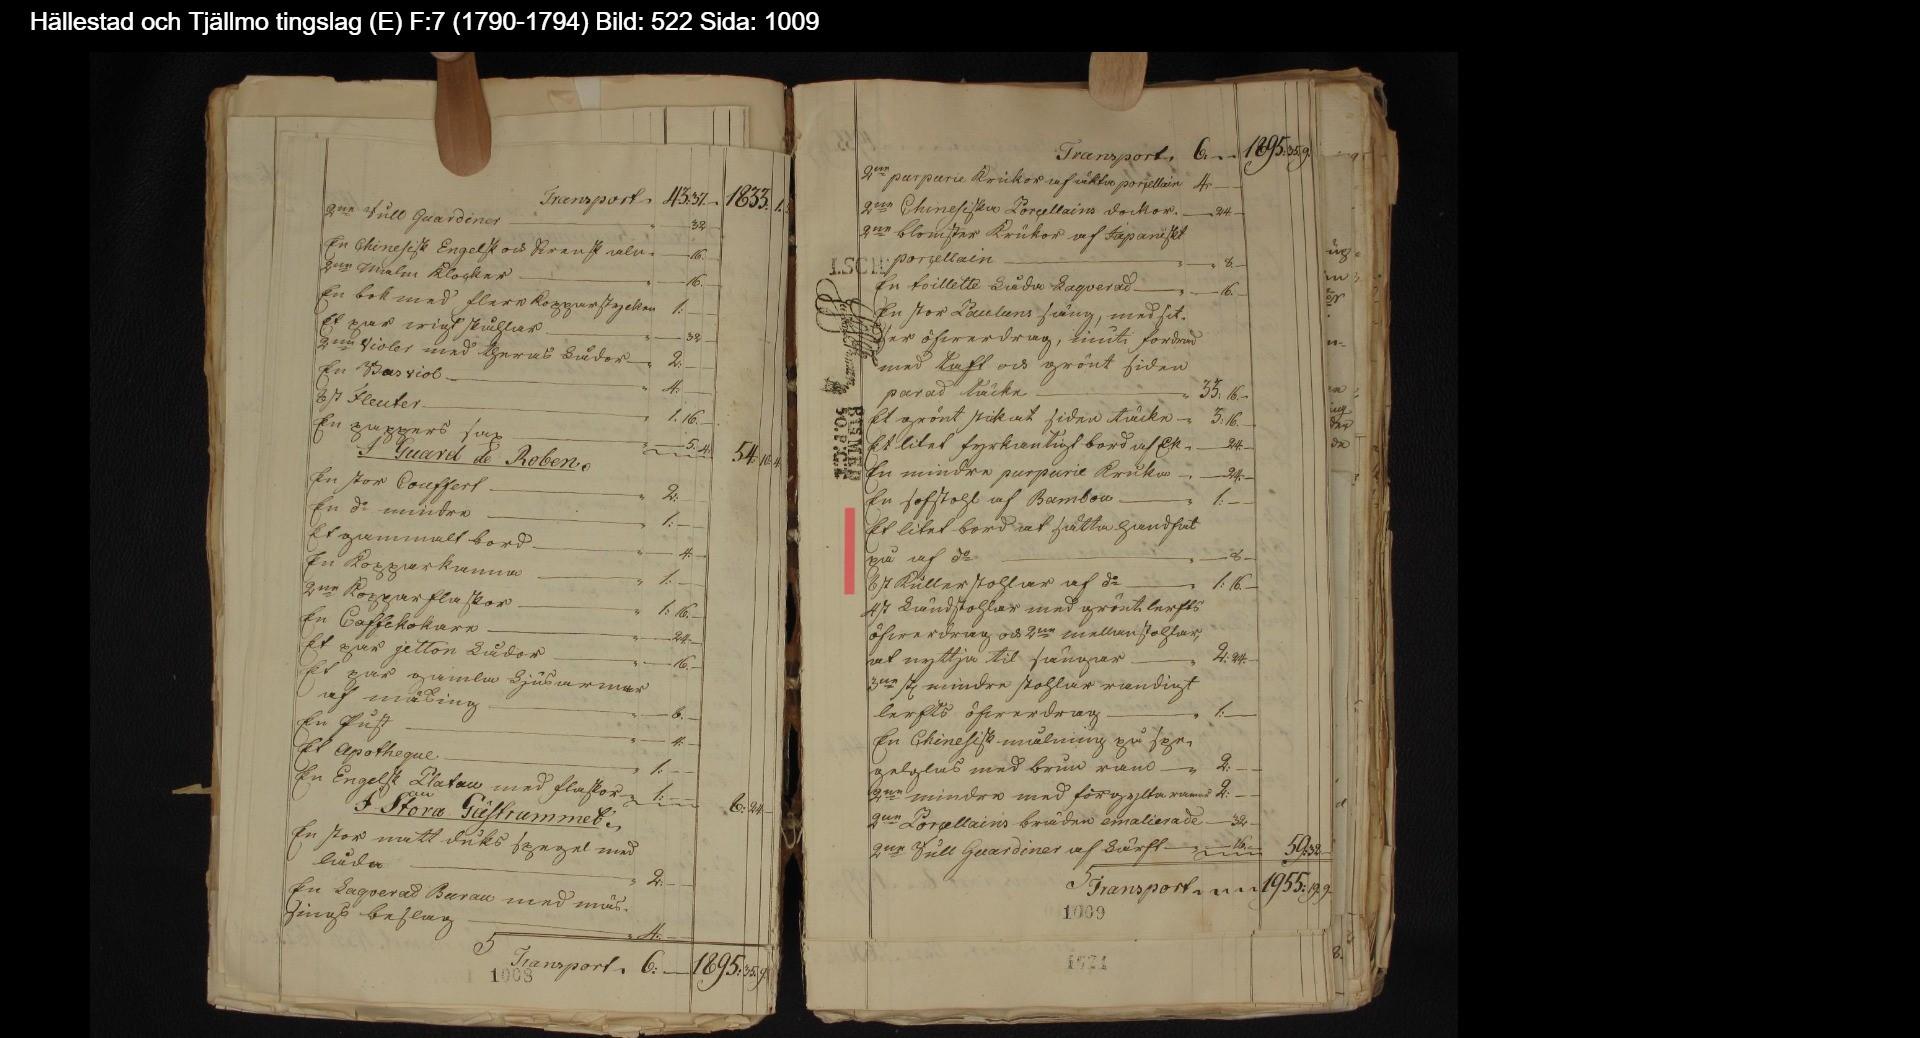 Hällestad och Tjällmo tingslag (E) F:7 (1790-1794) Bild: 522 Sida: 1009
Transport. 43:37. 1833. 1.
2ne Full Guardiner 32
En Chinesisk Engelsk och Svensk aln 16.
2ne Malm Klocker 16.
En bok med flere Kopparstycken 1:
Et par 32
2ne Violer med theras Lådor 2:
En Basviol 4:
3st Fleuter 1.16.
En pappers sax 5.4. 54.10.4.
I Guard de Roben.
En stor Couffert 2:
En do mindre 1:
Et gammalt bord 4:
En Kopparkanna 1:
2ne Kopparflaskor 1:16.
En Caffekokare 24.
Et par jetton Lådor 16.
Et par gamla Ljusarmar
af mässing 6.
En Pust 4.
Et Apotheque 1:
En Engelsk Platau med flaskor 1: 6:24
I Stora Gästrummet.
En stor natt duks spegel med
låda 2:
En Laqverad Burau med mäs-
sings beslag 4:
Transport. 6: 1895:35.9.
1008
Transport. 6. 1895:35.9.
2ne purpurie Krukor af äkta porsellain 4:
2ne Chinesiska Porcellains dockor. 24
2ne blomster Krukor af Japaniskt
porsellain 8.
En toillette Låda Laqverad 16.
En stor Pauluns säng, med sit-
ser öfverdrag, inuti fodrad
med Taft och grönt siden
parad täcke 33:16.
Et grönt stickat siden täcke 3:16.
Et litet fyrkantigt bord af Ek. 24
En mindre purpurie Kruka 24
En hofstohl af Bambou 1:
Et litet bord at sätta handfat
på af do 8
3st Küllerstohlar af do 1:16.
4st Länstohlar med grönt lerfts
öfverdrag och 2ne mellanstohlar,
at nyttja til sängar 2:24
3ne st mindre stohlar randigt
lerfts öfverdrag 1:
En Chinesisk målning på spe-
gelglas med brun ram 2:
2ne mindre med förgylta ramar 2:
2ne Porcellains bräden emalierade 32
2ne Full Guardiner af Lärft 16. 59:32
Transport 1955:19.9.
1009